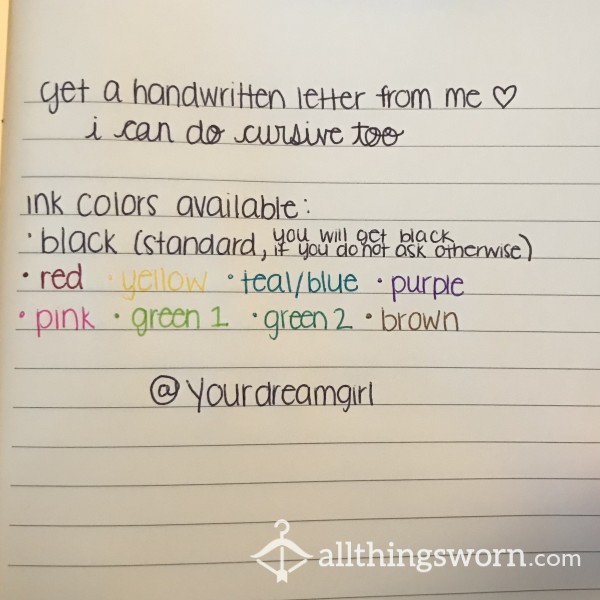 get a handwritten letter from me ♡
i can do cursive too
ink colors available:
• black (standard, you will get black
if you do not ask otherwise)
• red • yellow • teal/blue • purple
• pink • green 1 • green 2 • brown
@yourdreamgirl
allthingsworn.com